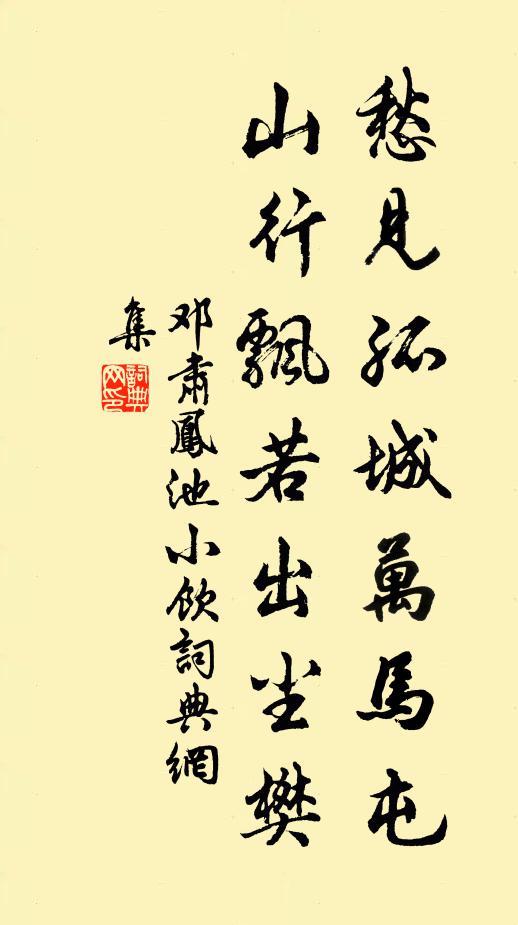 愁見孤城萬馬屯
山行飄若出尘樊
邓肅鳳池小飲詞典網
集
詞典
网印